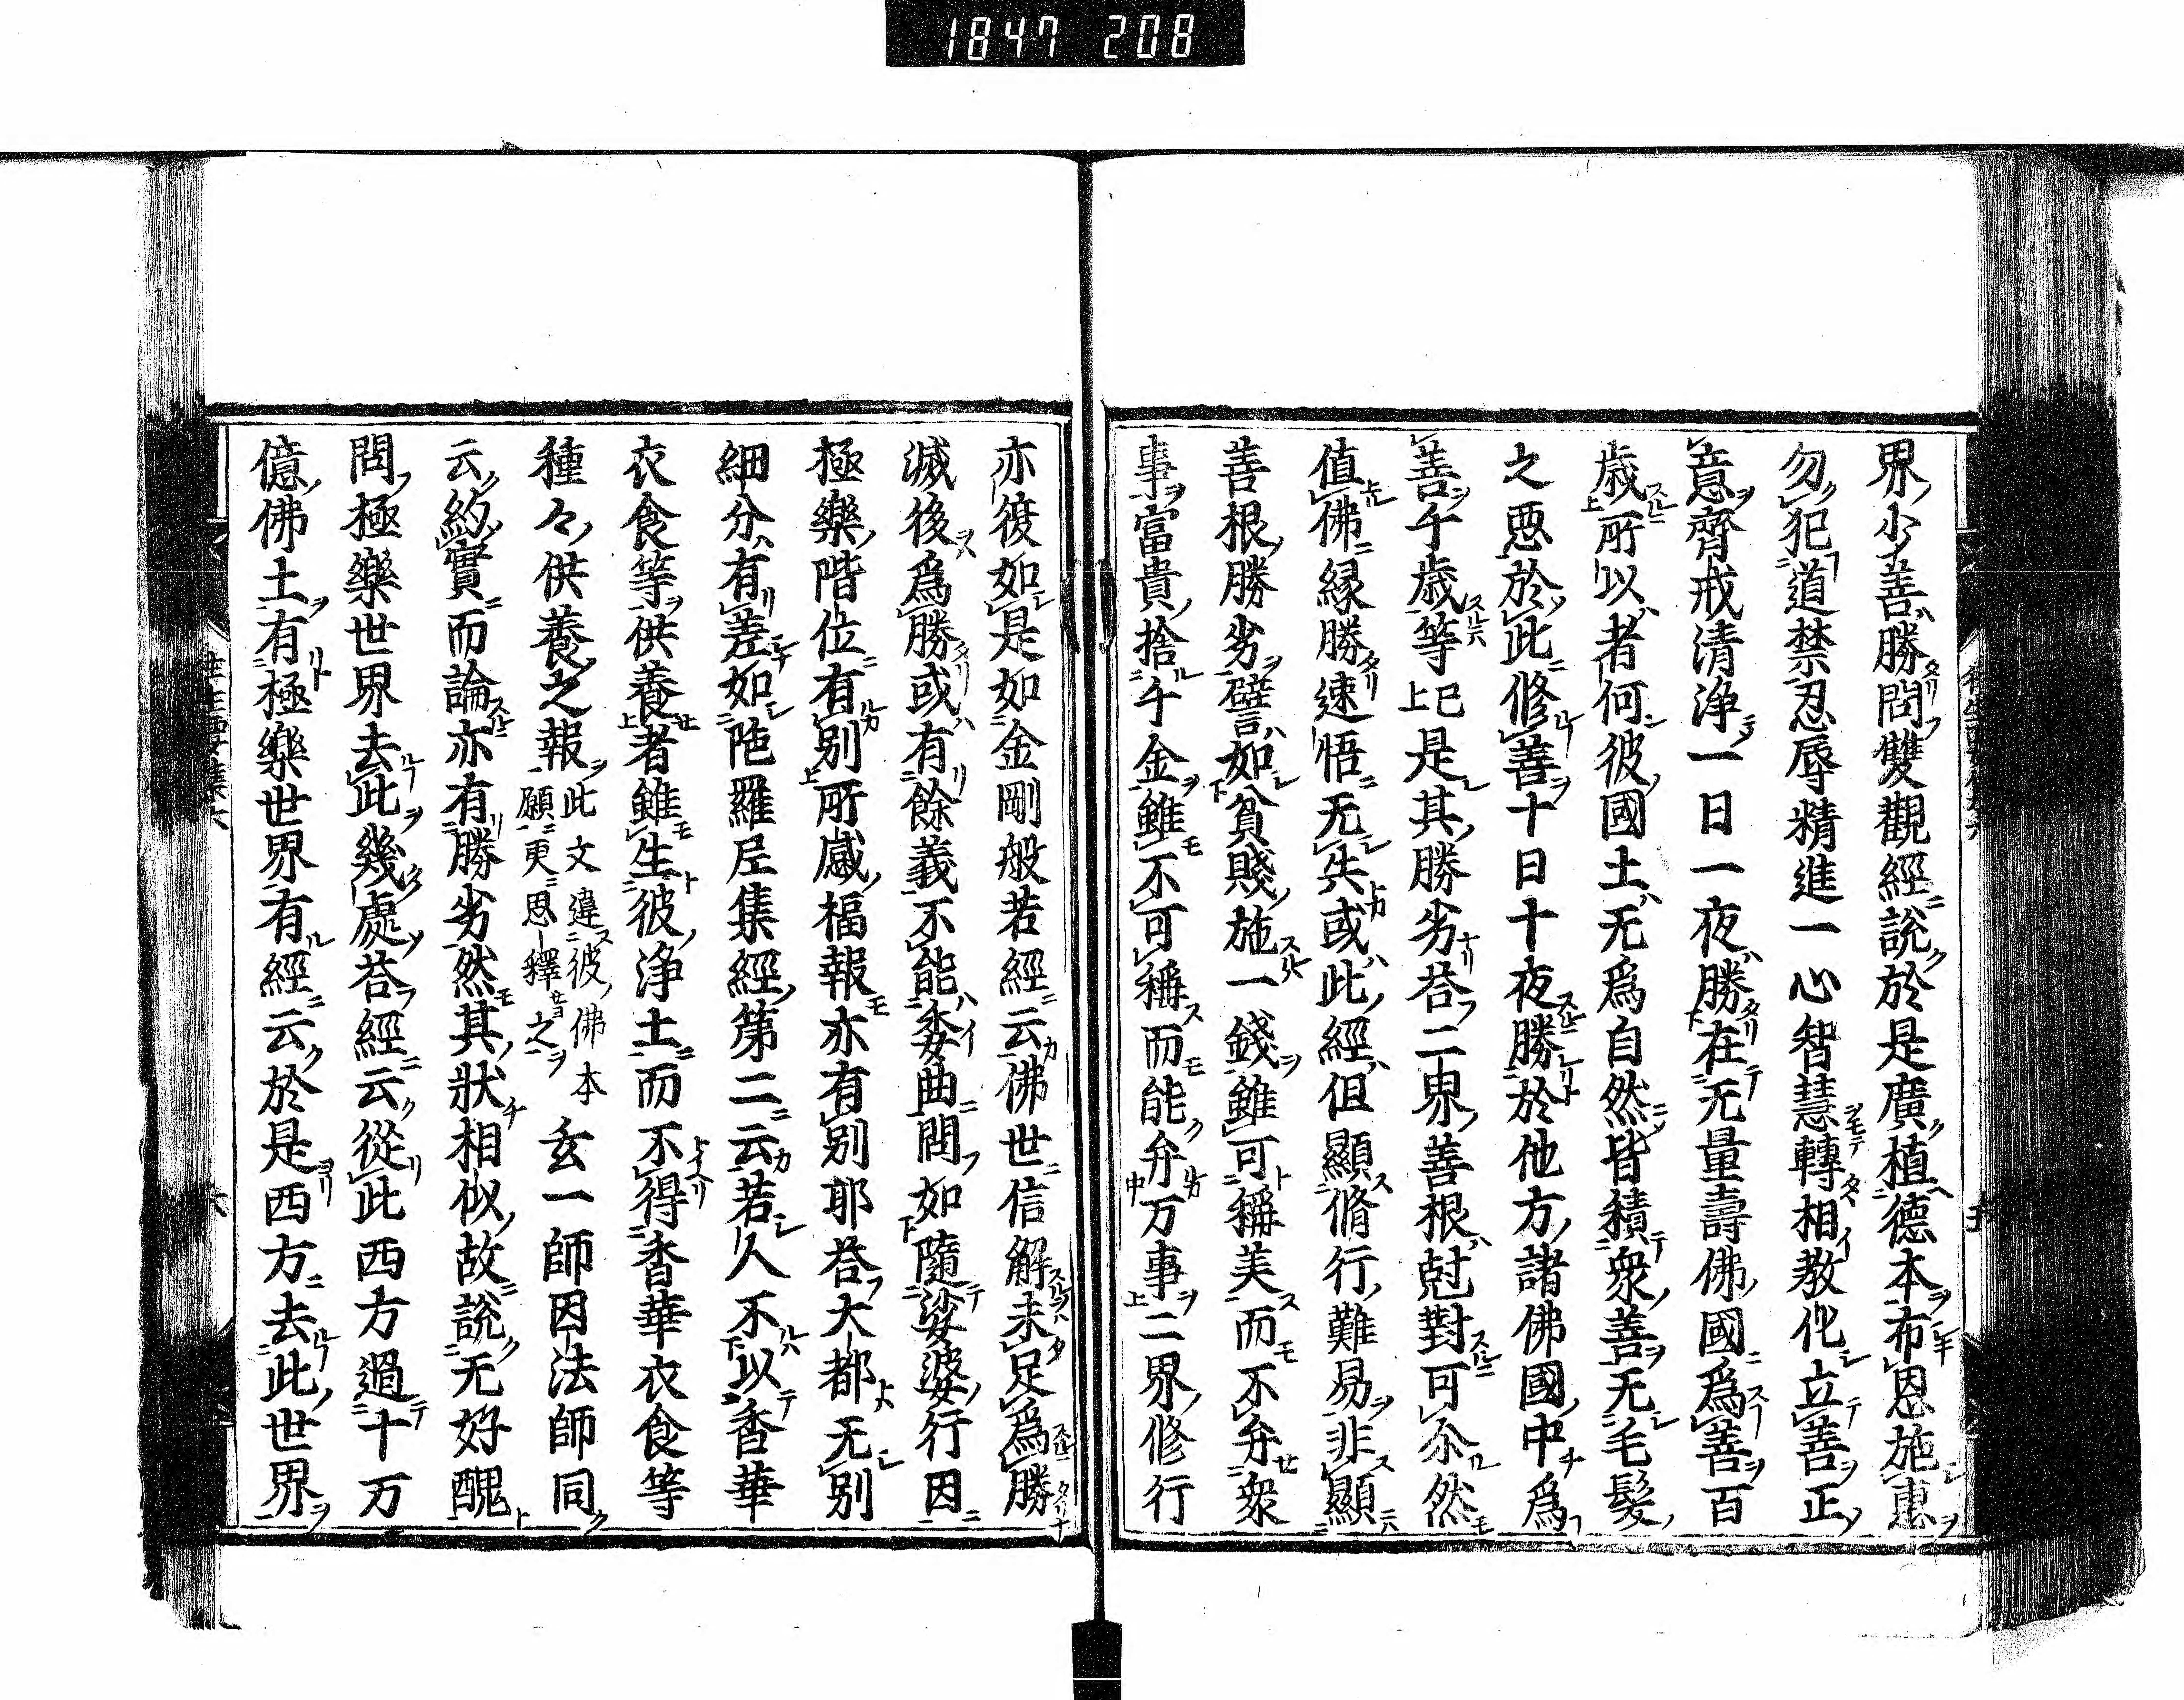 1847 208
界少善勝問雙觀經說於是廣植德本布恩施惠
勿犯道禁忍辱精進一心智慧轉相教化立善正
意齊戒清淨一日一夜勝在无量壽佛國爲善百
歲所以者何彼國土无爲自然皆積衆善无毛髮
之惡於此修善十日十夜勝於他方諸佛國中爲
善千歲等上已是其勝劣荅二界善根尅對可尒然
值佛縁勝速悟无失或此經但顯脩行難易非顯
善根勝劣譬如貧賤施一錢雖可稱美而不弁衆
事富貴捨千金雖不可稱而能弁万事二界修行
亦復如是如金剛般若經云佛世信解未足爲勝
滅後爲勝或有餘義不能委曲問如隨娑婆行因
極樂階位有別所感福報亦有別耶荅大都无別
細分有差如陁羅尼集經第二云若人不以香華
衣食等供養者雖生彼浄土而不得香華衣食等
種々供養之報此文違彼佛本願更思釋之玄一師因法師同
云約實而論亦有勝劣然其狀相似故說无好醜
問極樂世界去此幾處荅經云從此西方過十万
億佛土有極樂世界有經云於是西方去此世界